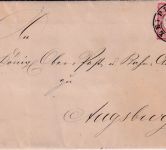 An
Königl. Ober-Post- u. Bahn-A
zu
Augsburg